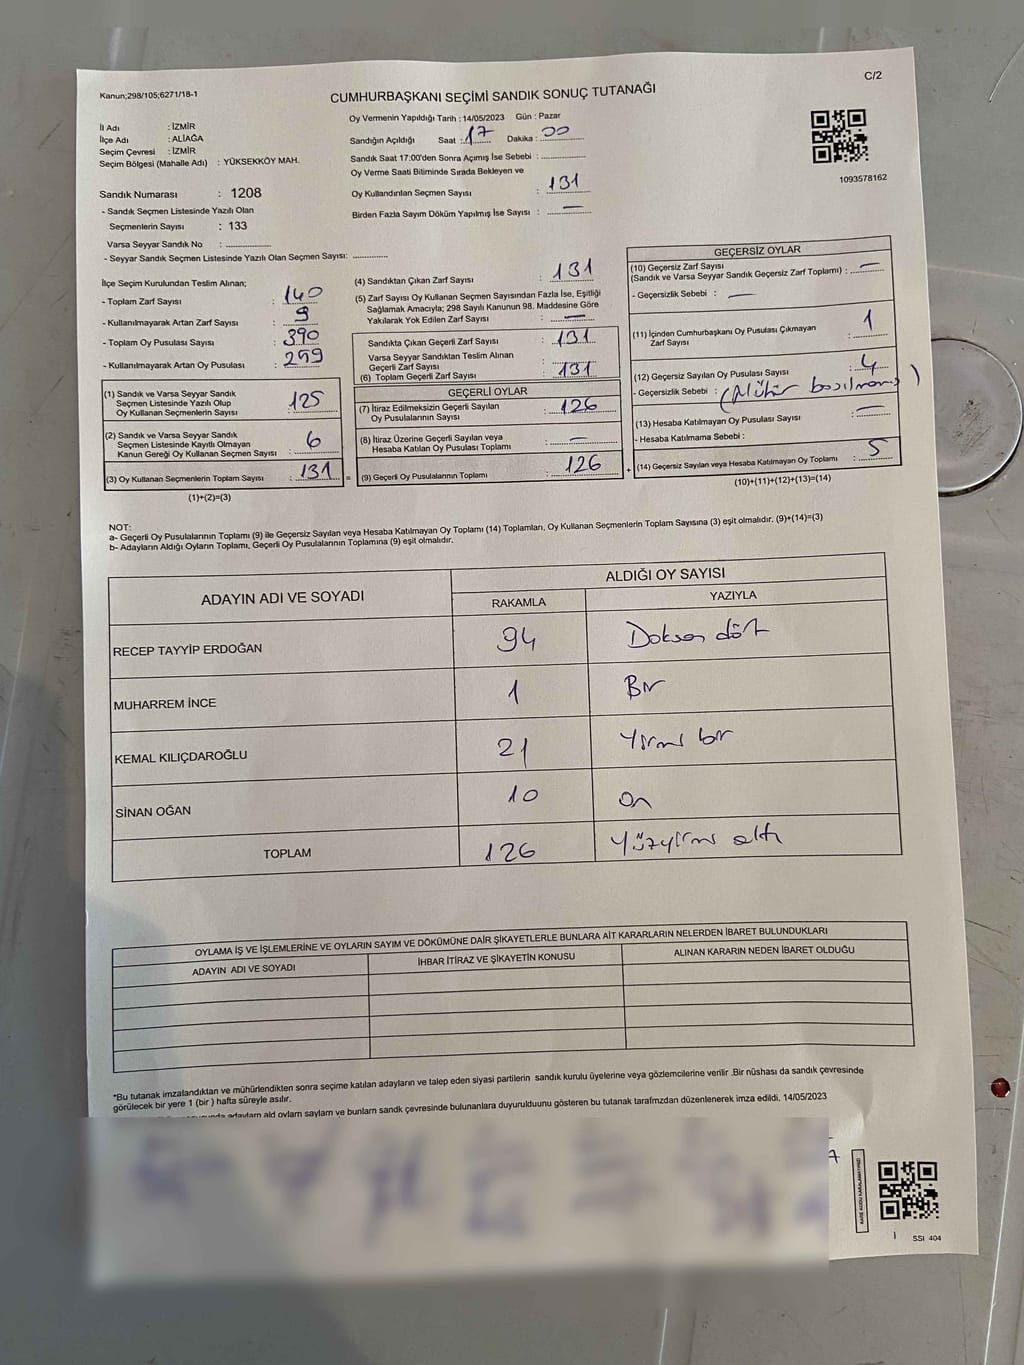 C/2
Kanun;298/105;6271/18-1
CUMHURBAŞKANI SEÇİMİ SANDIK SONUÇ TUTANAĞI
İl Adı : İZMİR
İlçe Adı : ALİAĞA
Seçim Çevresi : İZMİR
Seçim Bölgesi (Mahalle Adı) : YÜKSEKKÖY MAH.
Sandık Numarası : 1208
- Sandık Seçmen Listesinde Yazılı Olan
Seçmenlerin Sayısı : 133
Varsa Seyyar Sandık No :
- Seyyar Sandık Seçmen Listesinde Yazılı Olan Seçmen Sayısı:
Oy Vermenin Yapıldığı Tarih : 14/05/2023 Gün : Pazar
Sandığın Açıldığı Saat : 17 Dakika : 00
Sandık Saat 17:00'den Sonra Açımış İse Sebebi :
Oy Verme Saati Bitiminde Sırada Bekleyen ve
Oy Kullandırılan Seçmen Sayısı : 131
Birden Fazla Sayım Döküm Yapılmış İse Sayısı : —
1093578162
İlçe Seçim Kurulundan Teslim Alınan;
- Toplam Zarf Sayısı : 140
- Kullanılmayarak Artan Zarf Sayısı : 9
- Toplam Oy Pusulası Sayısı : 390
- Kullanılmayarak Artan Oy Pusulası : 259
(1) Sandık ve Varsa Seyyar Sandık
Seçmen Listesinde Yazılı Olup
Oy Kullanan Seçmenlerin Sayısı : 125
(2) Sandık ve Varsa Seyyar Sandık
Seçmen Listesinde Kayıtlı Olmayan
Kanun Gereği Oy Kullanan Seçmen Sayısı : 6
(3) Oy Kullanan Seçmenlerin Toplam Sayısı : 131
(1)+(2)=(3)
(4) Sandıktan Çıkan Zarf Sayısı : 131
(5) Zarf Sayısı Oy Kullanan Seçmen Sayısından Fazla İse, Eşitliği
Sağlamak Amacıyla; 298 Sayılı Kanunun 98. Maddesine Göre
Yakılarak Yok Edilen Zarf Sayısı : —
Sandıkta Çıkan Geçerli Zarf Sayısı : 131
Varsa Seyyar Sandıktan Teslim Alınan
Geçerli Zarf Sayısı
(6) Toplam Geçerli Zarf Sayısı : 131
GEÇERLİ OYLAR
(7) İtiraz Edilmeksizin Geçerli Sayılan
Oy Pusulalarının Sayısı : 126
(8) İtiraz Üzerine Geçerli Sayılan veya
Hesaba Katılan Oy Pusulası Toplamı : —
= (9) Geçerli Oy Pusulalarının Toplamı : 126
GEÇERSİZ OYLAR
(10) Geçersiz Zarf Sayısı
(Sandık ve Varsa Seyyar Sandık Geçersiz Zarf Toplamı) : —
- Geçersizlik Sebebi : —
(11) İçinden Cumhurbaşkanı Oy Pusulası Çıkmayan
Zarf Sayısı : 1
(12) Geçersiz Sayılan Oy Pusulası Sayısı : 4
- Geçersizlik Sebebi : (Mühür basılmamış)
(13) Hesaba Katılmayan Oy Pusulası Sayısı : —
- Hesaba Katılmama Sebebi :
+ (14) Geçersiz Sayılan veya Hesaba Katılmayan Oy Toplamı : 5
(10)+(11)+(12)+(13)=(14)
NOT:
a- Geçerli Oy Pusulalarının Toplamı (9) ile Geçersiz Sayılan veya Hesaba Katılmayan Oy Toplamı (14) Toplamları, Oy Kullanan Seçmenlerin Toplam Sayısına (3) eşit olmalıdır. (9)+(14)=(3)
b- Adayların Aldığı Oyların Toplamı, Geçerli Oy Pusulalarının Toplamına (9) eşit olmalıdır.
ADAYIN ADI VE SOYADI ALDIĞI OY SAYISI
RAKAMLA YAZIYLA
RECEP TAYYİP ERDOĞAN 94 Doksan dört
MUHARREM İNCE 1 Bir
KEMAL KILIÇDAROĞLU 21 Yirmi bir
SİNAN OĞAN 10 On
TOPLAM 126 Yüzyirmi altı
OYLAMA İŞ VE İŞLEMLERİNE VE OYLARIN SAYIM VE DÖKÜMÜNE DAİR ŞİKAYETLERLE BUNLARA AİT KARARLARIN NELERDEN İBARET BULUNDUKLARI
ADAYIN ADI VE SOYADI İHBAR İTİRAZ VE ŞİKAYETİN KONUSU ALINAN KARARIN NEDEN İBARET OLDUĞU
*Bu tutanak imzalandıktan ve mühürlendikten sonra seçime katılan adayların ve talep eden siyasi partilerin sandık kurulu üyelerine veya gözlemcilerine verilir .Bir nüshası da sandık çevresinde
görülecek bir yere 1 (bir ) hafta süreyle asılır.
adaylarn ald oylarn saylarn ve bunlarn sandk çevresinde bulunanlara duyurulduunu gösteren bu tutanak tarafmzdan düzenlenerek imza edildi. 14/05/2023
KARE KODU KARALAMAYINIZ!
SSI 404